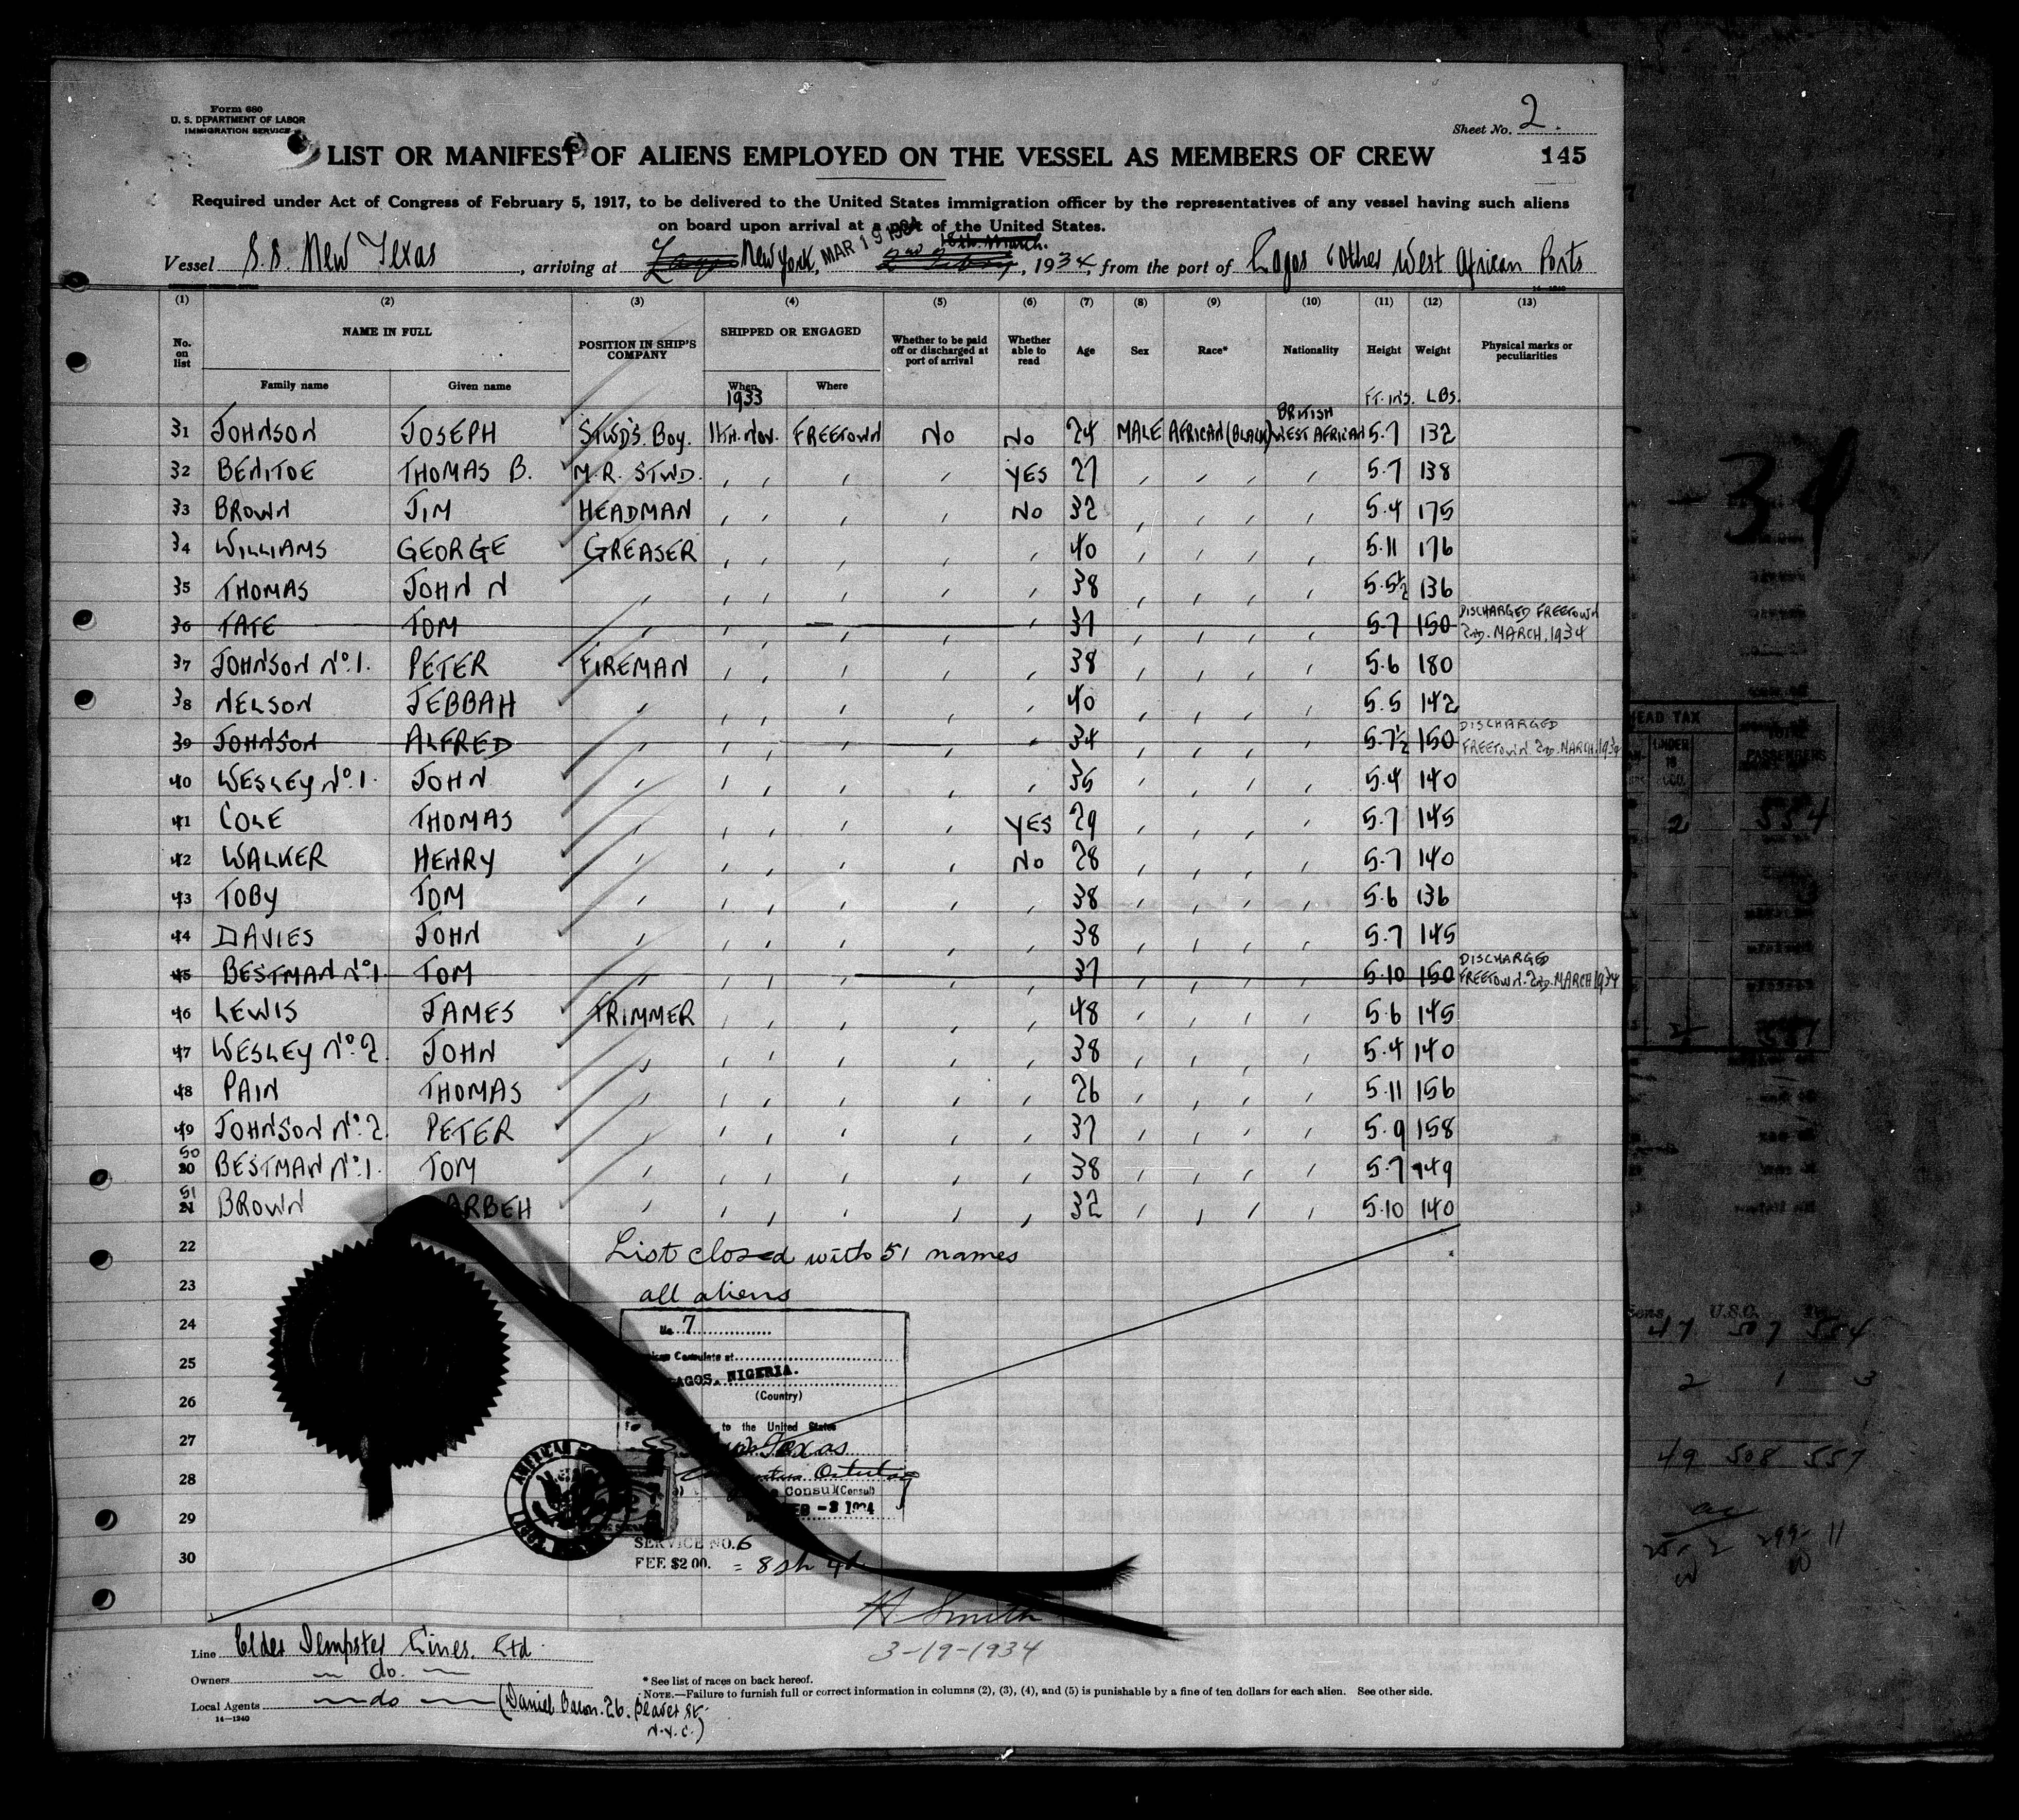 Form 680
U. S. DEPARTMENT OF LABOR
IMMIGRATION SERVICE
Sheet No. 2.
LIST OR MANIFEST OF ALIENS EMPLOYED ON THE VESSEL AS MEMBERS OF CREW
145
Required under Act of Congress of February 5, 1917, to be delivered to the United States immigration officer by the representatives of any vessel having such aliens
on board upon arrival at a port of the United States.
18th. March.
Vessel S.S. New Texas, arriving at New York, MAR 19 1934, 1934, from the port of Lagos & other West African Ports
(1) (2) (3) (4) (5) (6) (7) (8) (9) (10) (11) (12) (13)
No. on list NAME IN FULL POSITION IN SHIP'S COMPANY SHIPPED OR ENGAGED Whether to be paid off or discharged at port of arrival Whether able to read Age Sex Race* Nationality Height Weight Physical marks or peculiarities
Family name Given name When Where
1933 FT. INS. LBS.
31 JOHNSON JOSEPH STWD'S. Boy. 11TH. Nov. FREETOWN No No 24 MALE AFRICAN (BLACK) BRITISH WEST AFRICAN 5.7 132
32 BENITOE THOMAS B. M.R. STWD. , , , , YES 27 , , , , , 5.7 138
33 BROWN JIM HEADMAN , , , , No 32 , , , , , 5.4 175
34 WILLIAMS GEORGE GREASER , , , , , 40 , , , , , 5.11 176
35 THOMAS JOHN N , , , , , , 38 , , , , , 5.5½ 136
36 TATE TOM , , , , , , 37 , , , , , 5.7 150 DISCHARGED FREETOWN 2ND. MARCH. 1934
37 JOHNSON No. 1. PETER FIREMAN , , , , , 38 , , , , , 5.6 180
38 NELSON JEBBAH , , , , , , 40 , , , , , 5.5 142
39 JOHNSON ALFRED , , , , , , 34 , , , , , 5.7½ 150 DISCHARGED FREETOWN 2ND. MARCH. 1934
40 WESLEY No. 1. JOHN , , , , , , 36 , , , , , 5.4 140
41 COLE THOMAS , , , , , YES 29 , , , , , 5.7 145
42 WALKER HENRY , , , , , No 28 , , , , , 5.7 140
43 TOBY TOM , , , , , , 38 , , , , , 5.6 136
44 DAVIES JOHN , , , , , , 38 , , , , , 5.7 145
45 BESTMAN No. 1 TOM , , , , , , 37 , , , , , 5.10 150 DISCHARGED FREETOWN. 2ND. MARCH 1934
46 LEWIS JAMES TRIMMER , , , , , 48 , , , , , 5.6 145
47 WESLEY No. 2. JOHN , , , , , , 38 , , , , , 5.4 140
48 PAIN THOMAS , , , , , , 26 , , , , , 5.11 156
49 JOHNSON No. 2. PETER , , , , , , 37 , , , , , 5.9 158
50 BESTMAN No. 1. TOM , , , , , , 38 , , , , , 5.7 149
51 BROWN ARBEH , , , , , , 32 , , , , , 5.10 140
22 List closed with 51 names
23 all aliens
24 No. 7
25 LAGOS, NIGERIA.
26 (Country)
to the United States
27 Texas
28 Consul (Consul)
29 FEB -3 1934
SERVICE NO. 6
30 FEE $2.00. = 8 sh 4d
H Smith
3-19-1934
Line Elder Dempster Lines. Ltd.
Owners — do. —
Local Agents — do — (Daniel Bacon. 26. Beaver St. N.Y.C.)
14—1240
* See list of races on back hereof.
NOTE.—Failure to furnish full or correct information in columns (2), (3), (4), and (5) is punishable by a fine of ten dollars for each alien. See other side.
34
HEAD TAX
UNDER 16
PASSENGERS
2 554
557
U.S.C.
47 507 554
2 1 3
49 508 557